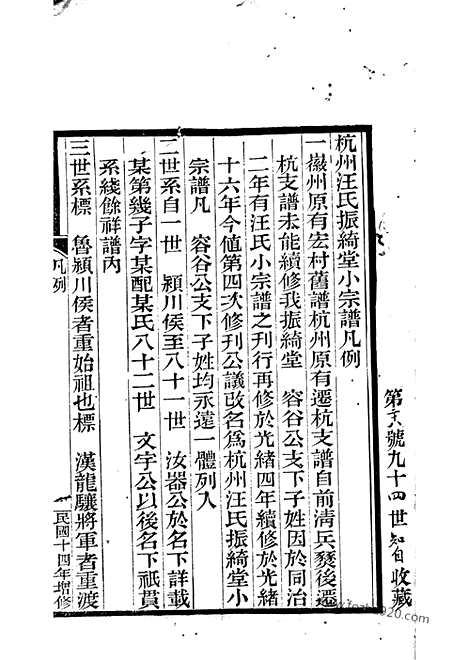 第　號九十四世智收藏
杭州汪氏振綺堂小宗譜凡例
一徽州原有宏村舊譜杭州原有遷杭支譜自前清兵燹後遷
杭支譜未能續修我振綺堂　容谷公支下子姓因於同治
二年有汪氏小宗譜之刊行再修於光緒四年續修於光緒
十六年今値第四次修刊公議改名爲杭州汪氏振綺堂小
宗譜凡　容谷公支下子姓均永遠一體列入
二世系自一世　潁川侯至八十一世　汝器公於名下詳載
某第幾子字某配某氏八十二世　文字公以後名下祇貫
系綫餘祥譜內
三世系標　魯潁川侯者重始祖也標　漢龍驤將軍者重渡
凡例
民國十四年增修